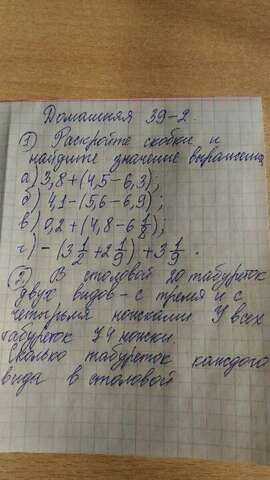 Домашняя 39-2.
① Раскройте скобки и
найдите значение выражения
а) 3,8+(4,5-6,3);
б) 4,1-(5,6-6,9);
в) 0,2+(4,8-6 1/8);
г) -(3 1/2+2 1/9)+3 1/9.
② В столовой 20 табуреток
двух видов - с тремя и с
четырьмя ножками У всех
табуреток 74 ножки.
Сколько табуреток каждого
вида в столовой